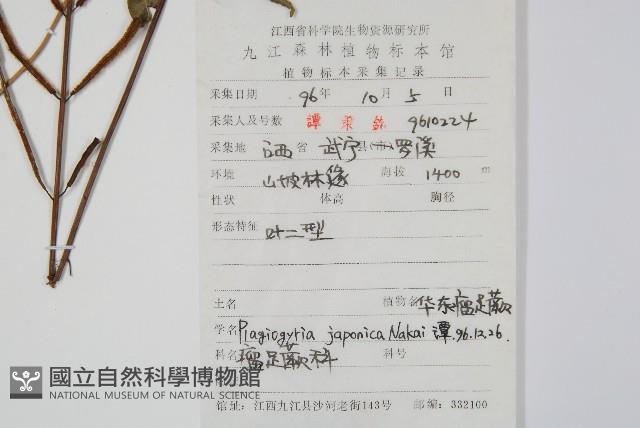 江西省科学院生物资源研究所
九江森林植物标本馆
植物标本采集记录
采集日期 96年 10月 5日
采集人及号数 譚 9610224
采集地 江西省 武宁县(市) 罗溪
环地 山坡林缘 海拔 1400 m
性状 体高 胸径
形态特征 叶二型
土名 植物名 华东瘤足蕨
学名 Plagiogyria japonica Nakai 譚.96.12.26.
科名 瘤足蕨科 科号
國立自然科學博物館
NATIONAL MUSEUM OF NATURAL SCIENCE
馆址:江西九江县沙河老街143号 邮编:332100